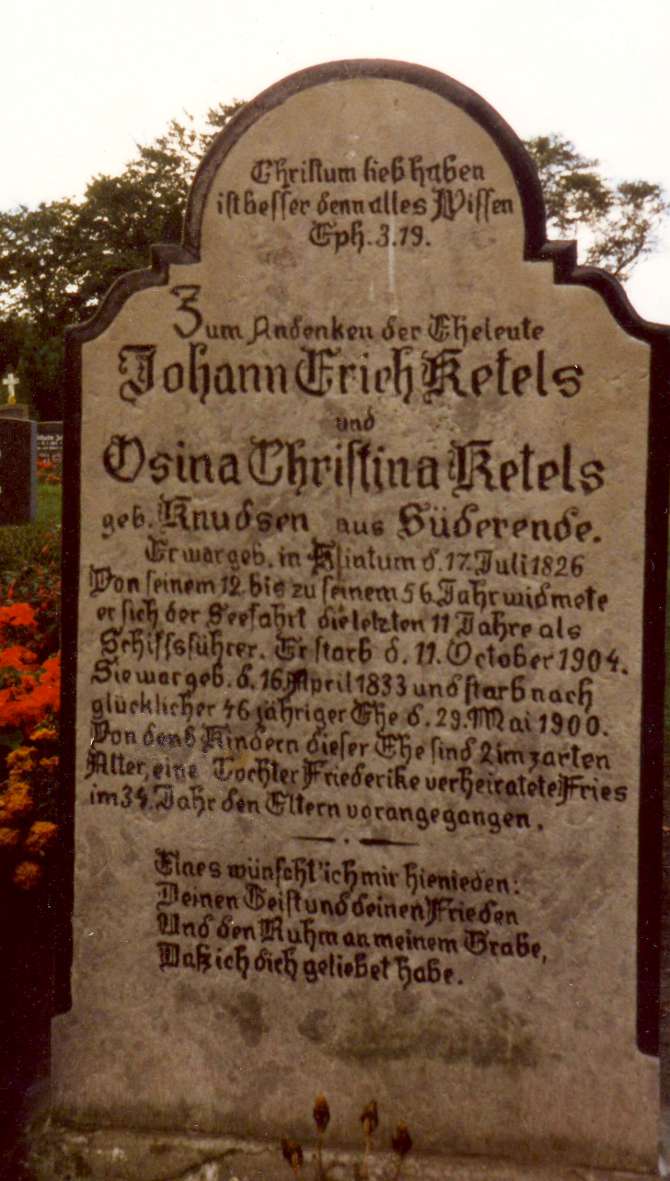 Christum lieb haben
ist besser denn alles Wissen
Eph. 3.19.
Zum Andenken der Eheleute
Johann Erich Ketels
und
Osina Christina Ketels
geb. Knudsen aus Süderende.
Er war geb. in Klintum d. 17. Juli 1826
Von seinem 12. bis zu seinem 56. Jahr widmete
er sich der Seefahrt die letzten 11 Jahre als
Schiffsführer. Er starb d. 11. October 1904.
Sie war geb. d. 16. April 1833 und starb nach
glücklicher 46 jähriger Ehe d. 29. Mai 1900.
Von den 6 Kindern dieser Ehe sind 2 im zarten
Alter, eine Tochter Friederike verheiratete Fries
im 34. Jahr den Eltern vorangegangen.
Eines wünscht' ich mir hienieden:
Deinen Geist und deinen Frieden
Und den Ruhm an meinem Grabe,
Daß ich dich geliebet habe.